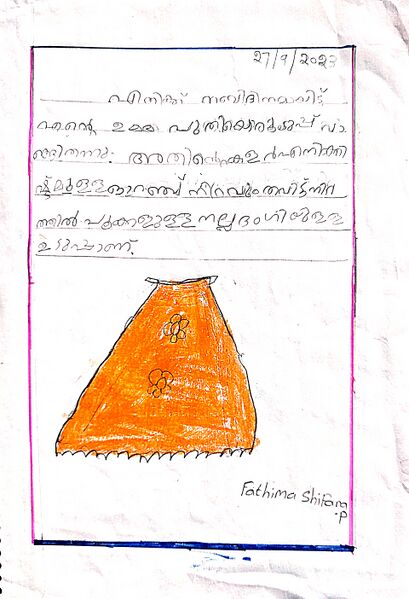 27/9/2023
എനിക്ക്
എന്റെ ഉമ്മ പുതിയൊരുടുപ്പ് വാ
ങ്ങിതന്നു. അതിന്റെകളർഎനിക്കി
ഷ്ടമുള്ളഓറഞ്ച് നിറവുംതവിട്ട്നിറ
ത്തിൽ പൂക്കളുള്ള നല്ലഭംഗിയുള്ള
ഉടുപ്പാണ്.
Fathima Shifana
.P